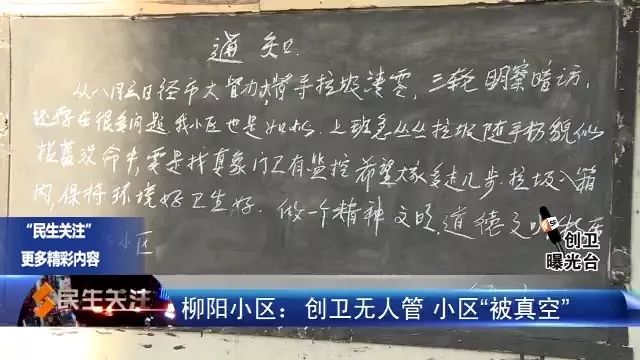 通知
从八月三日径市大督办,督导垃圾清零,三轮明察暗访,
还存在很多问题,我小区也是如此.上班急丛丛垃圾随手扔貌似
找真象门卫有监控希望大家多走几步.垃圾入箱
内,保持环境好卫生好.做一个精神文明,道德文明
小区
“民生关注”
更多精彩内容
创卫
曝光台
民生关注
柳阳小区:创卫无人管 小区“被真空”